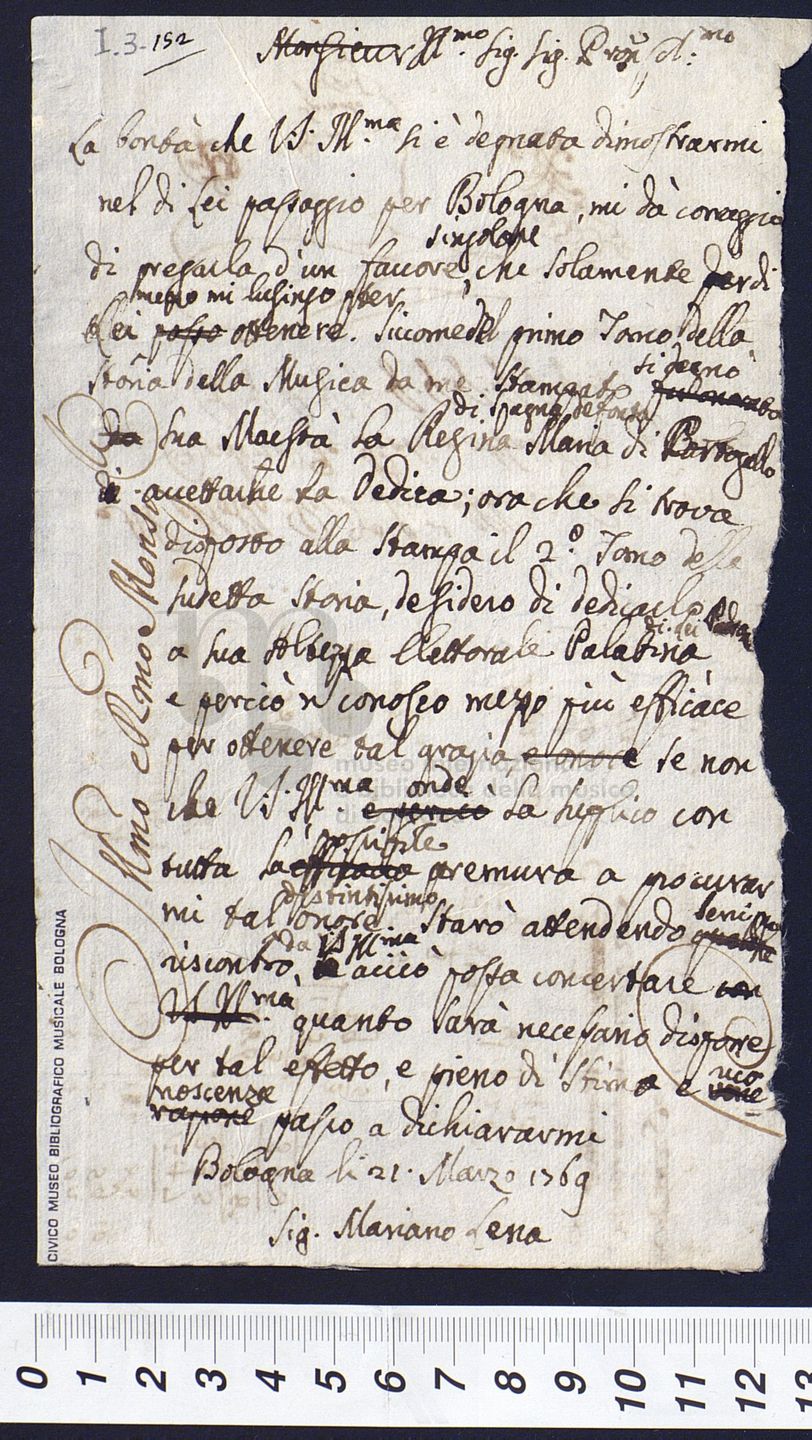 I.3.152
Monsieur Ill.mo Sig. Sig. Pron Col.mo
La bontà che V.S. Ill.ma si è degnata dimostrarmi
nel di Lei passaggio per Bologna, mi dà coraggio
singolare
di pregarla d'un favore, che solamente per di
mezzo mi lusingo poter
Lei posso ottenere. Siccome del primo Tomo della
si degnò
Storia della Musica da me stampato
di Spagna defonta
da Sua Maestà La Regina Maria di Portogallo
di accettarne La Dedica; ora che si trova
disposto alla stampa il 2.o Tomo della
sudetta Storia, desidero di dedicarlo
di Lei Padrone
a sua Altezza Elettorale Palatina
e perciò n conosco mezzo più efficace
per ottenere tal grazia, e onore se non
onde
che V.S. Ill.ma e perciò La supplico con
possibile
tutta La efficacia premura a procurar
distintissimo
mi tal onore. Starò attendendo
da V.S. Ill.ma
riscontro, acciò possa concertare con
V.S. Ill.ma quanto sarà necessario disporre
per tal effetto, e pieno di stima e
rico
noscenza
passo a dichiararmi
Bologna li 21. Marzo 1769
Sig. Mariano Lena
Illmo e Rmo Monsi
CIVICO MUSEO BIBLIOGRAFICO MUSICALE BOLOGNA
museo internazionale
biblioteca della musica
di bologna
0 1 2 3 4 5 6 7 8 9 10 11 12 13